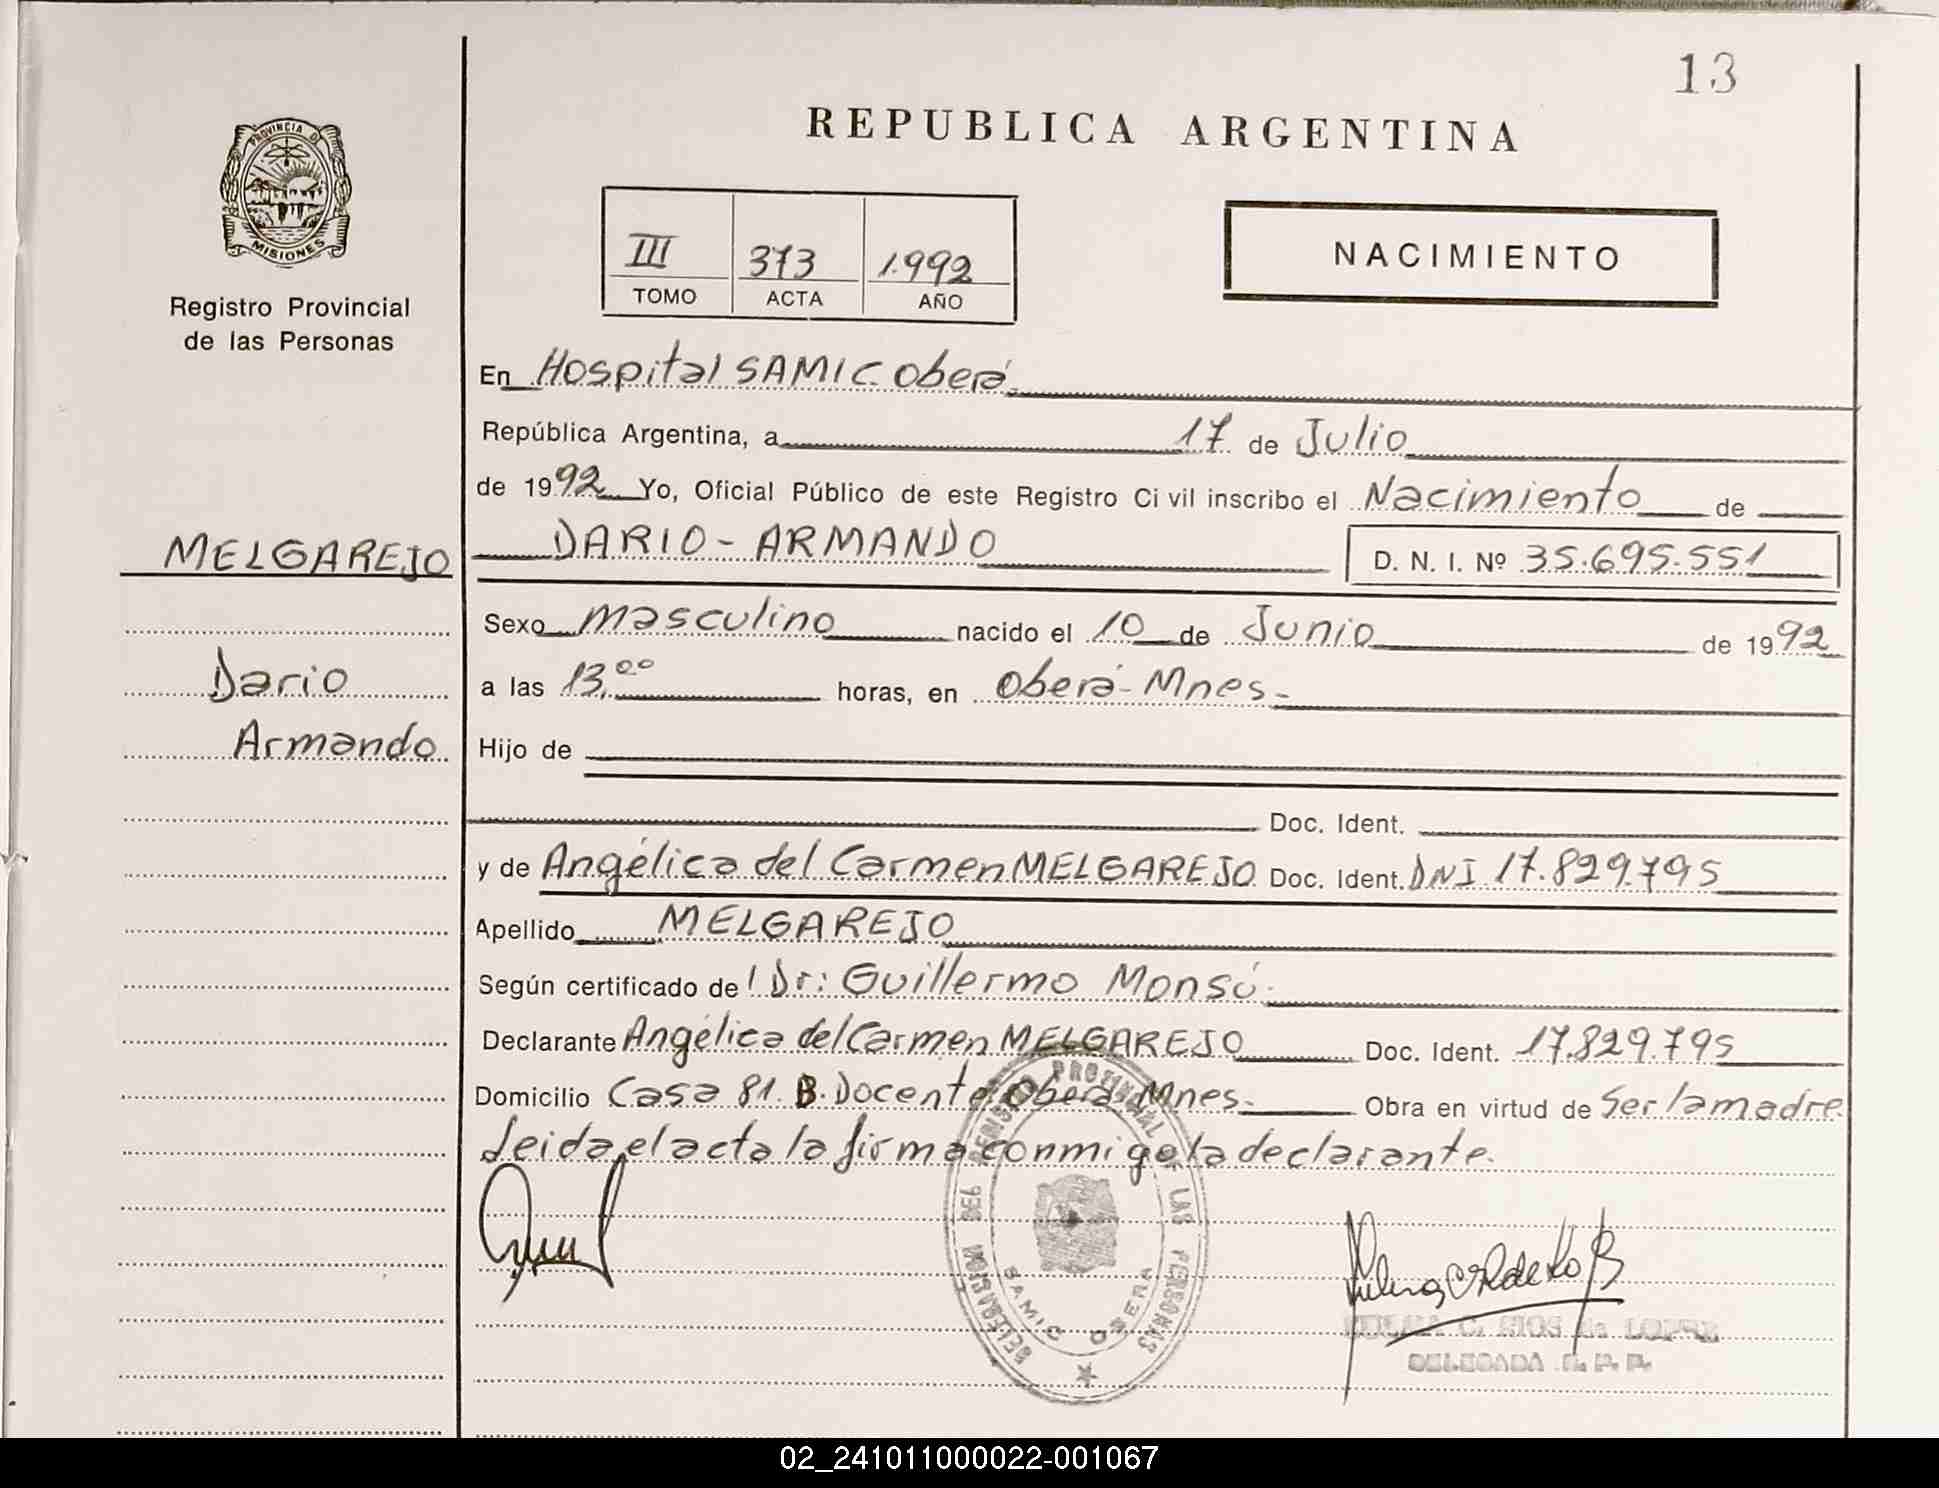 13
REPUBLICA ARGENTINA
PROVINCIA DE
MISIONES
Registro Provincial
de las Personas
III 373 1.992
TOMO ACTA AÑO
NACIMIENTO
En Hospital SAMIC Oberá
República Argentina, a 17 de Julio
de 1992 Yo, Oficial Público de este Registro Civil inscribo el Nacimiento de
MELGAREJO
DARIO - ARMANDO D. N. I. Nº 35.695.551
Sexo masculino nacido el 10 de Junio de 1992
Dario
a las 13,00 horas, en Oberá - Mnes.
Armando
Hijo de
Doc. Ident.
y de Angélica del Carmen MELGAREJO Doc. Ident. DNI 17.829.795
Apellido MELGAREJO
Según certificado de l Dr: Guillermo Monsú.
Declarante Angélica del Carmen MELGAREJO Doc. Ident. 17.829.795
Domicilio Casa 81. B. Docente Oberá Mnes. Obra en virtud de Ser la madre
Leida el acta la firma conmigo la declarante.
DELEGACION DEL REGISTRO PROVINCIAL DE LAS PERSONAS
SAMIC OBERA
C. RIOS de LOPEZ
DELEGADA R. P. P.
02_241011000022-001067